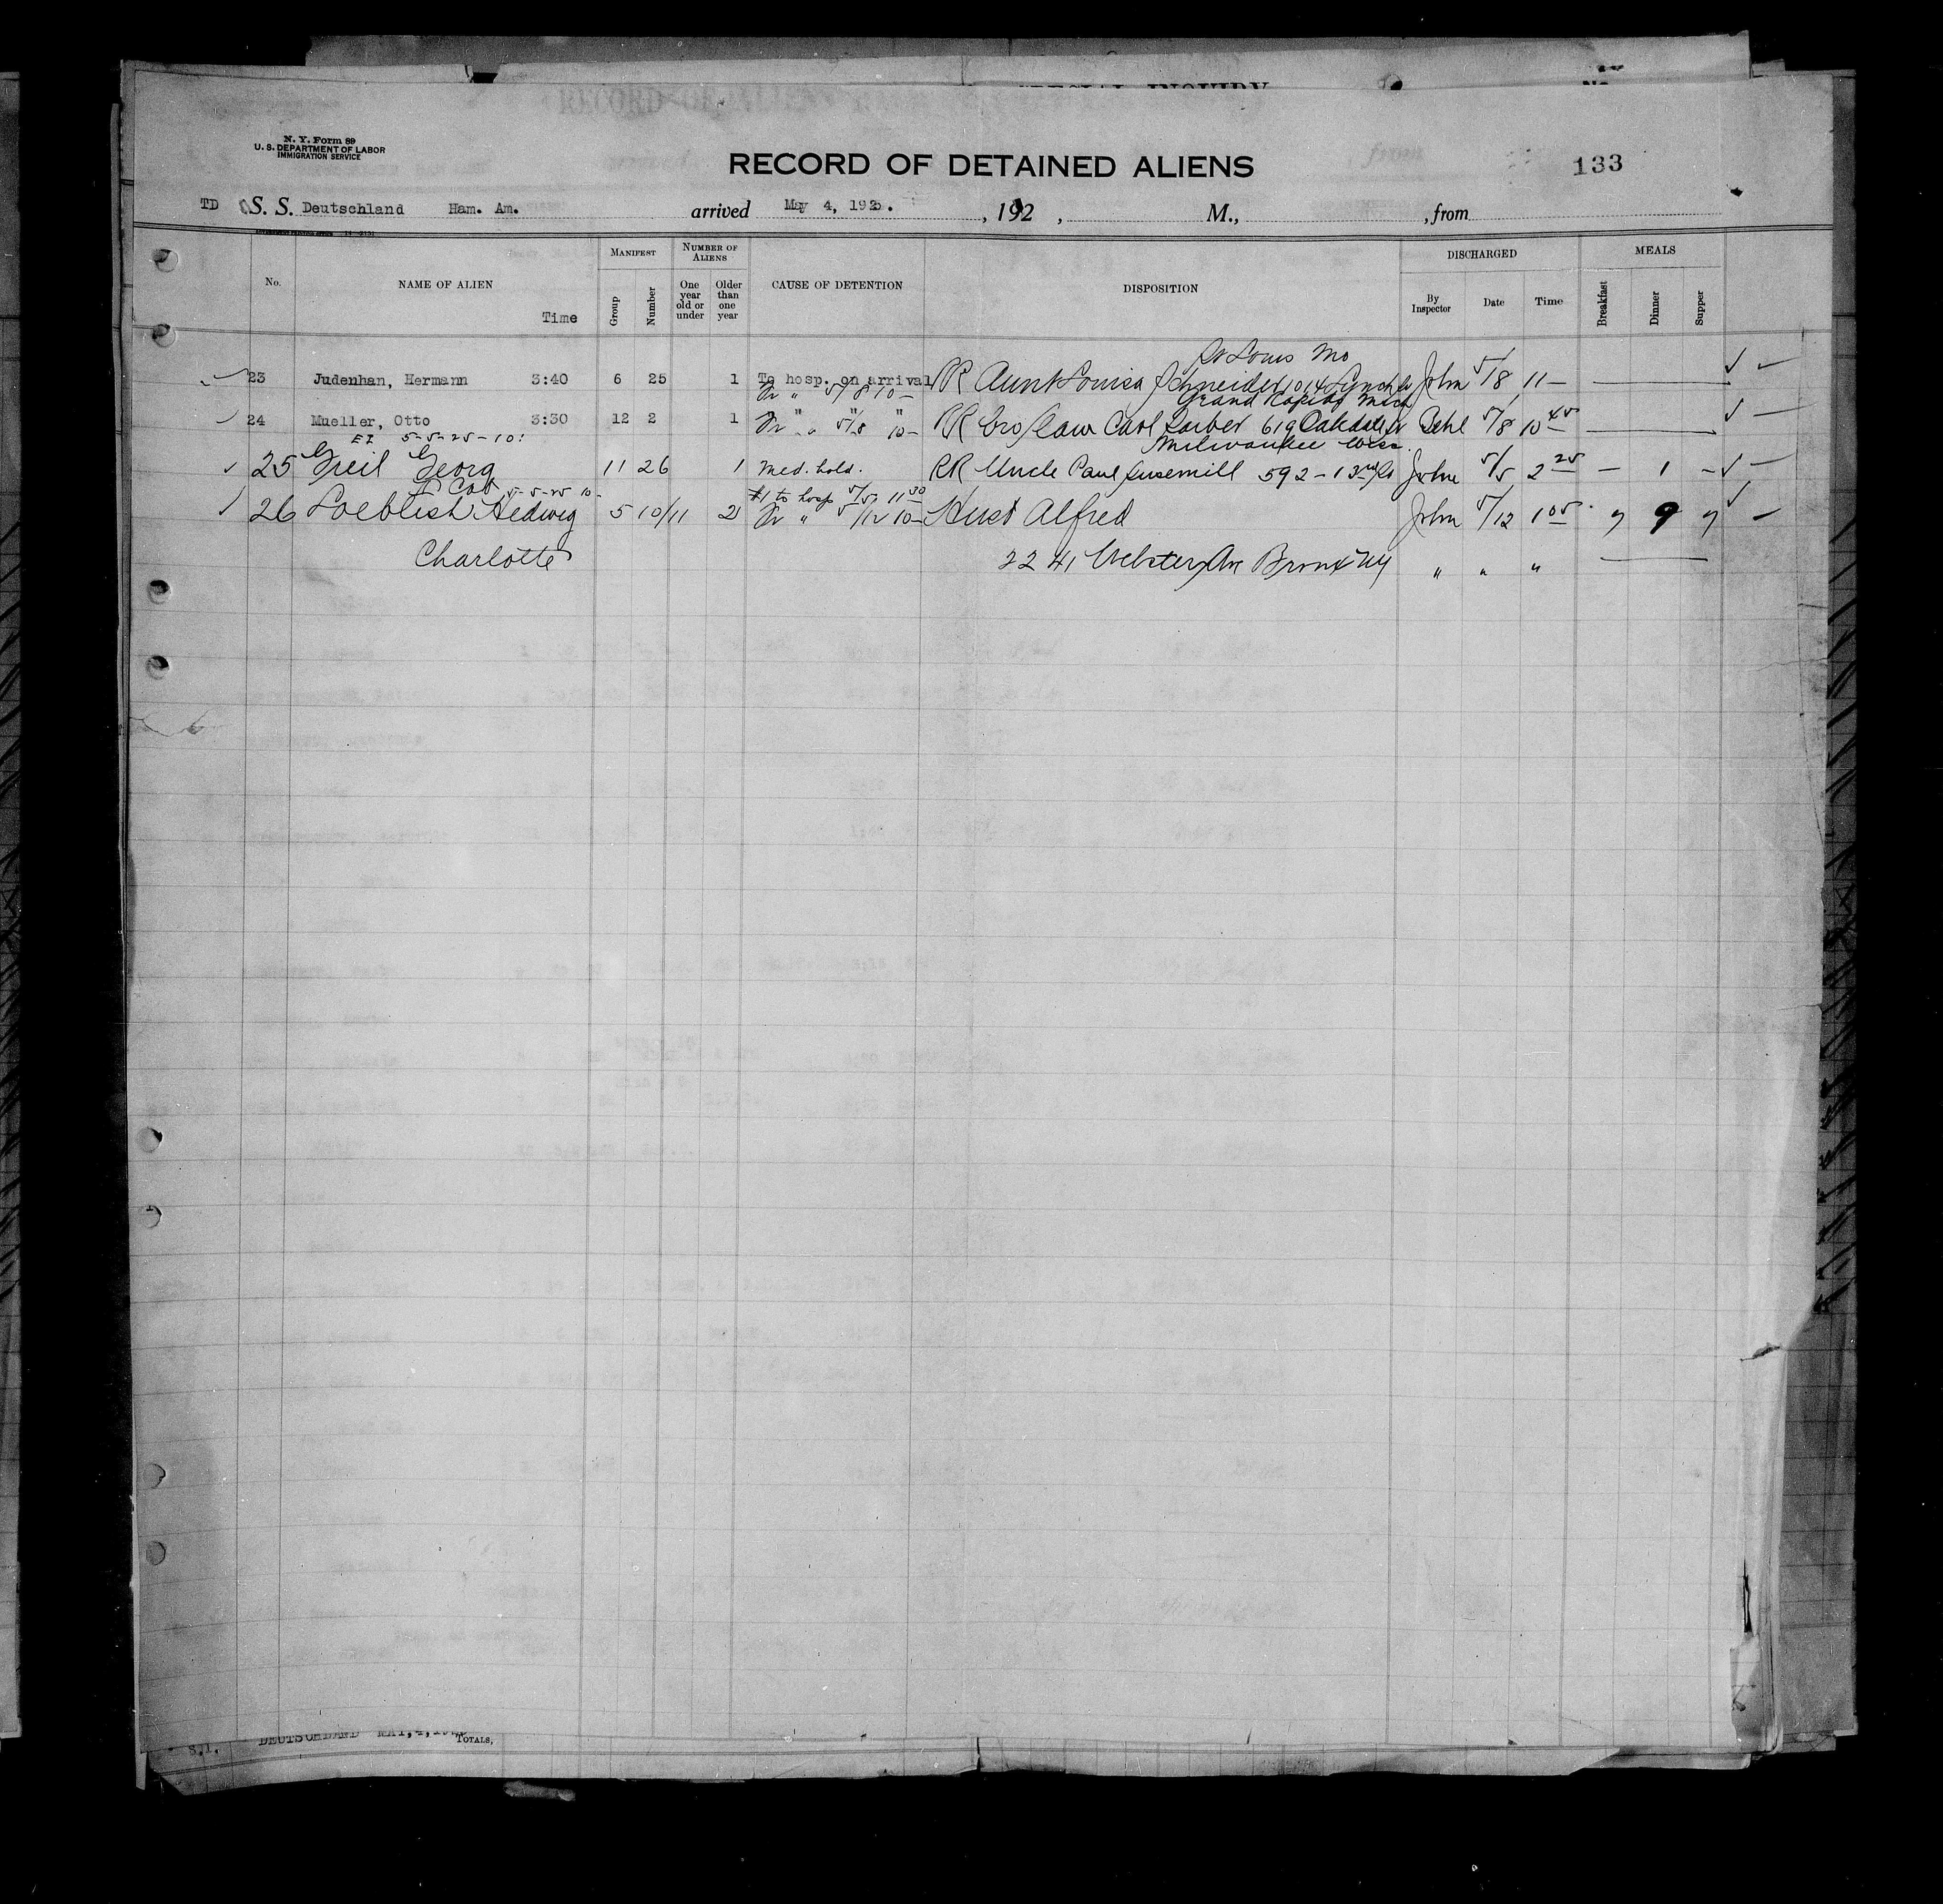 SPECIAL INQUIRY
N. Y. Form 89
U. S. DEPARTMENT OF LABOR
IMMIGRATION SERVICE
RECORD OF DETAINED ALIENS
133
TD S. S. Deutschland Ham. Am. arrived May 4, 1925. , 192 , M., , from
No. NAME OF ALIEN Time MANIFEST Group Number NUMBER OF ALIENS One year old or under Older than one year CAUSE OF DETENTION DISPOSITION DISCHARGED By Inspector Date Time MEALS Breakfast Dinner Supper
St Louis Mo
23 Judenhan, Hermann 3:40 6 25 1 To hosp. on arrival RR Aunt Louisa Schneider 1014 Lynch St John 5/8 11 —
Fr " 5/8 10 —
Grand Rapids Mich
24 Mueller, Otto 3:30 12 2 1 " " " RR bro/law Carl 619 Oakdale St 5/8 10 45
Fr " 5/8 10 —
EI 5-5-25-10:
Milwaukee Wisc.
25 Greil Georg 11 26 1 Med. hold. RR Uncle Paul 592 - John 5/5 2 25 — 1 —
5-5-25 10 -
#1 to hosp 5/5, 11 30
26 Loeblish Hedwig 5 10/11 2 Fr " 5/12 10 — Husb Alfred John 5/12 1 05 7 9 7
Charlotte 2241 Webster Ave Bronx NY " " "
S.I. DEUTSCHLAND MAY, 4, TOTALS,